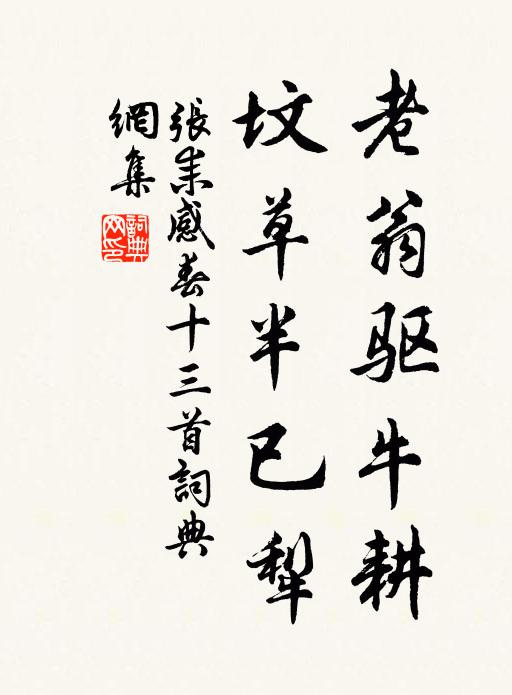 老翁驱牛耕
坟草半已犁
張耒感春十三首詞典
網集
詞典网印